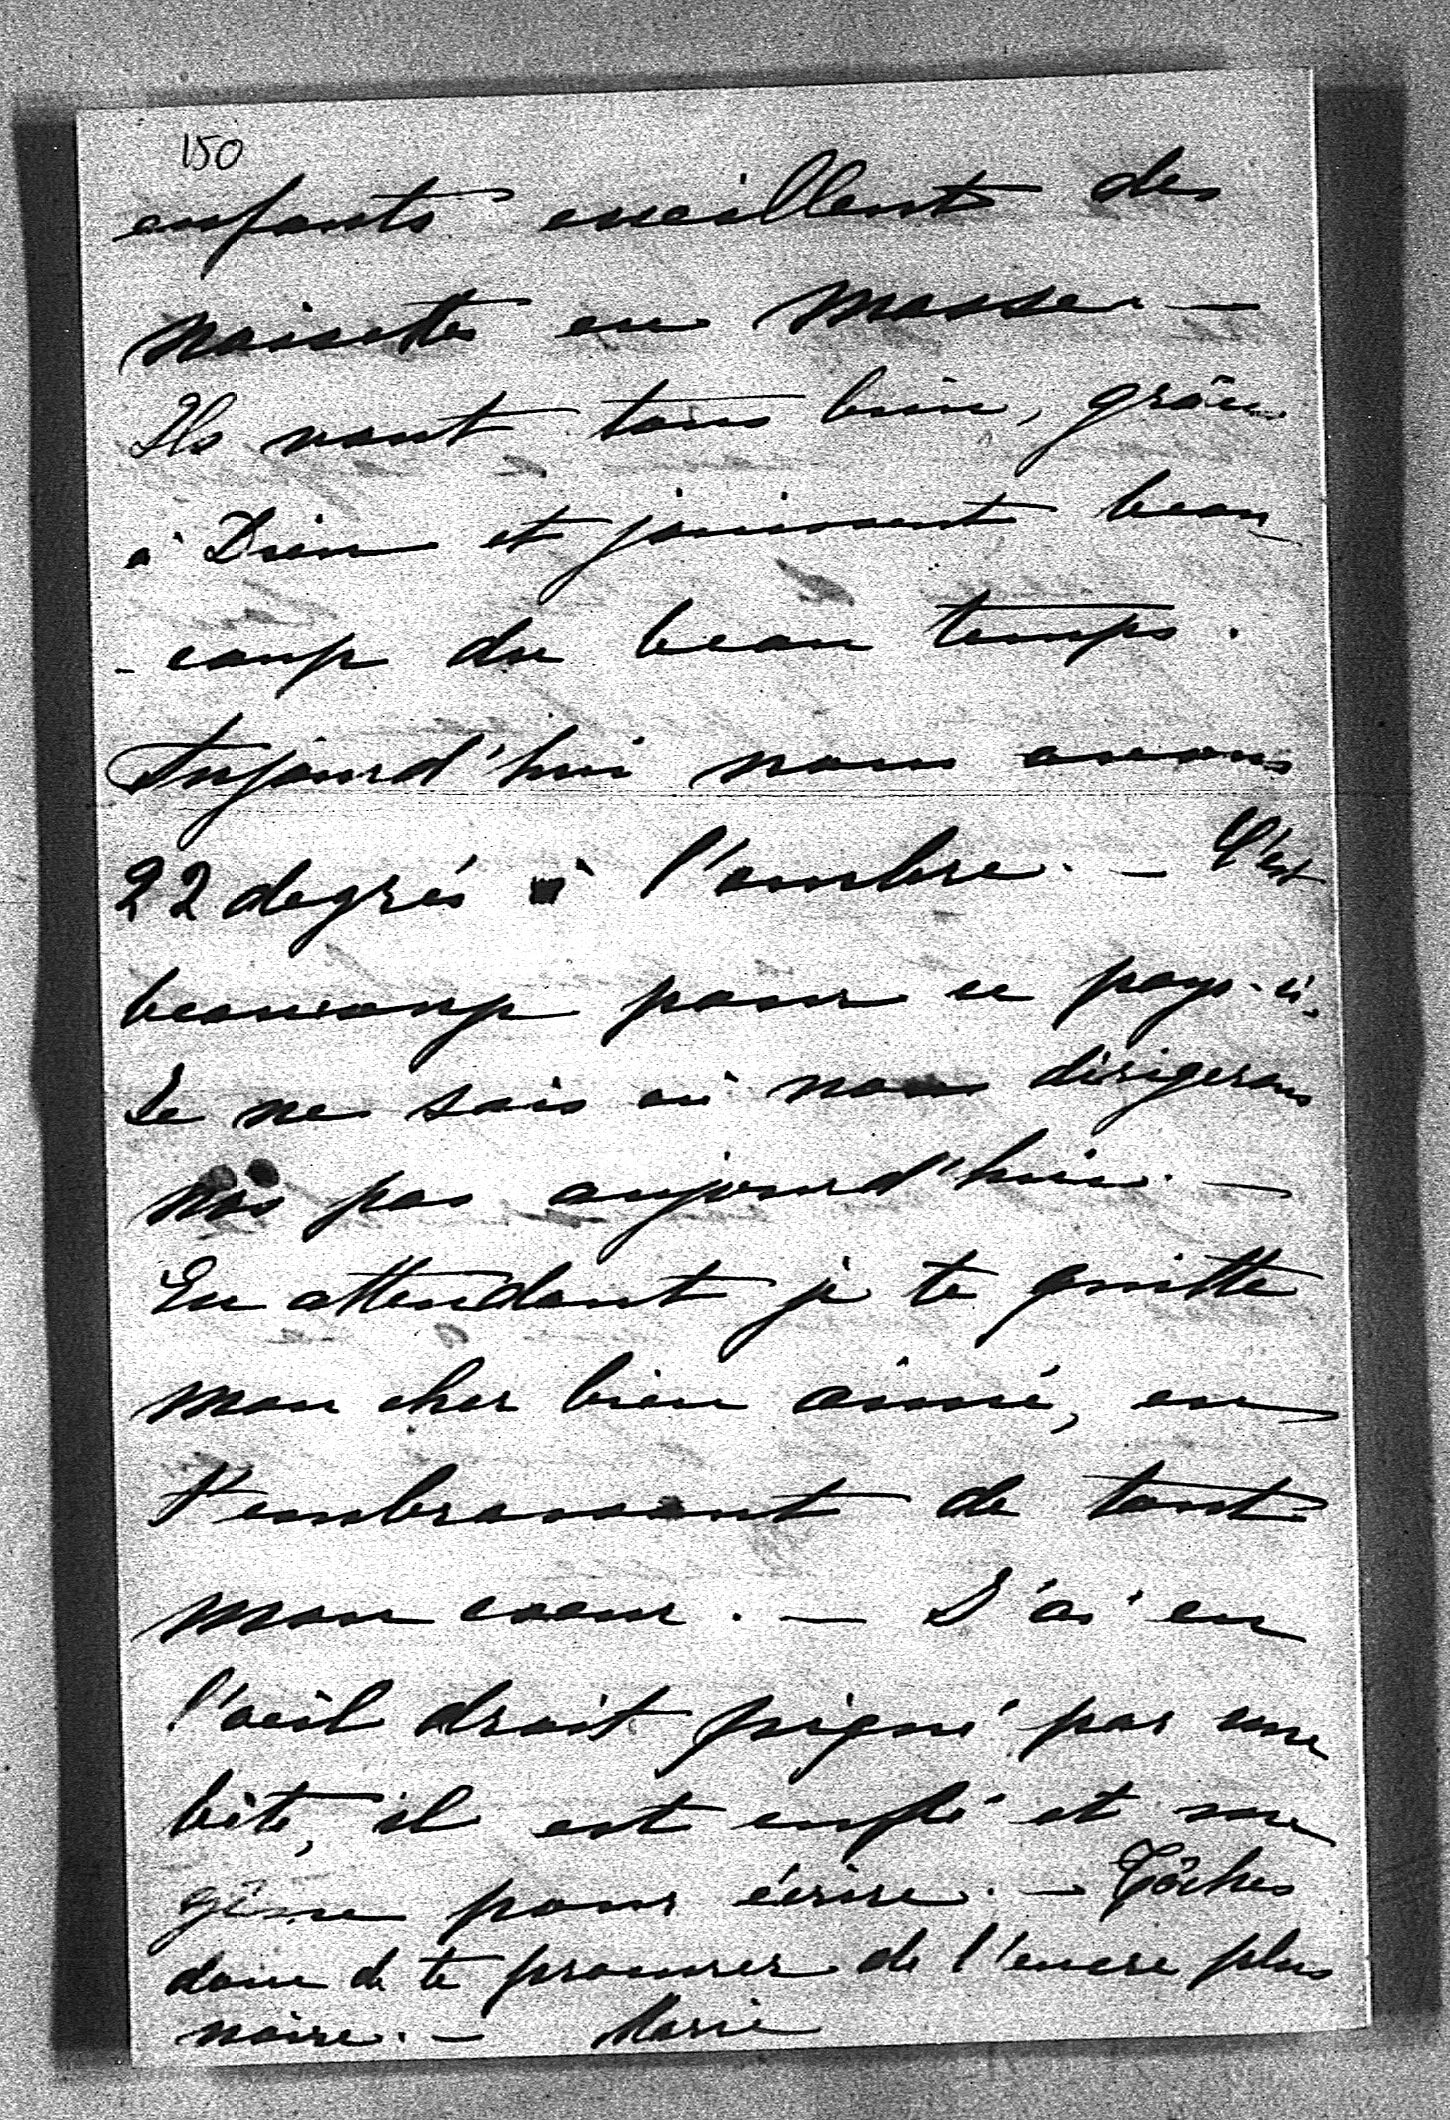 150
enfants cueillent des
noisettes en masse. —
Ils vont tous bien, grâce
à Dieu et jouissent beau
- coup du beau temps.
Aujourd'hui nous avons
22 degrés à l'ombre. — C'est
beaucoup pour ce pays-ci.
Je ne sais où nous dirigerons
nos pas aujourd'hui. —
En attendant je te quitte
mon cher bien aimé, en
t'embrassant de tout
mon coeur. — J'ai eu
l'oeil droit piqué par une
bête, il est enflé et me
gêne pour écrire. — Tâches
donc de te procurer de l'encre plus
noire. — Marie